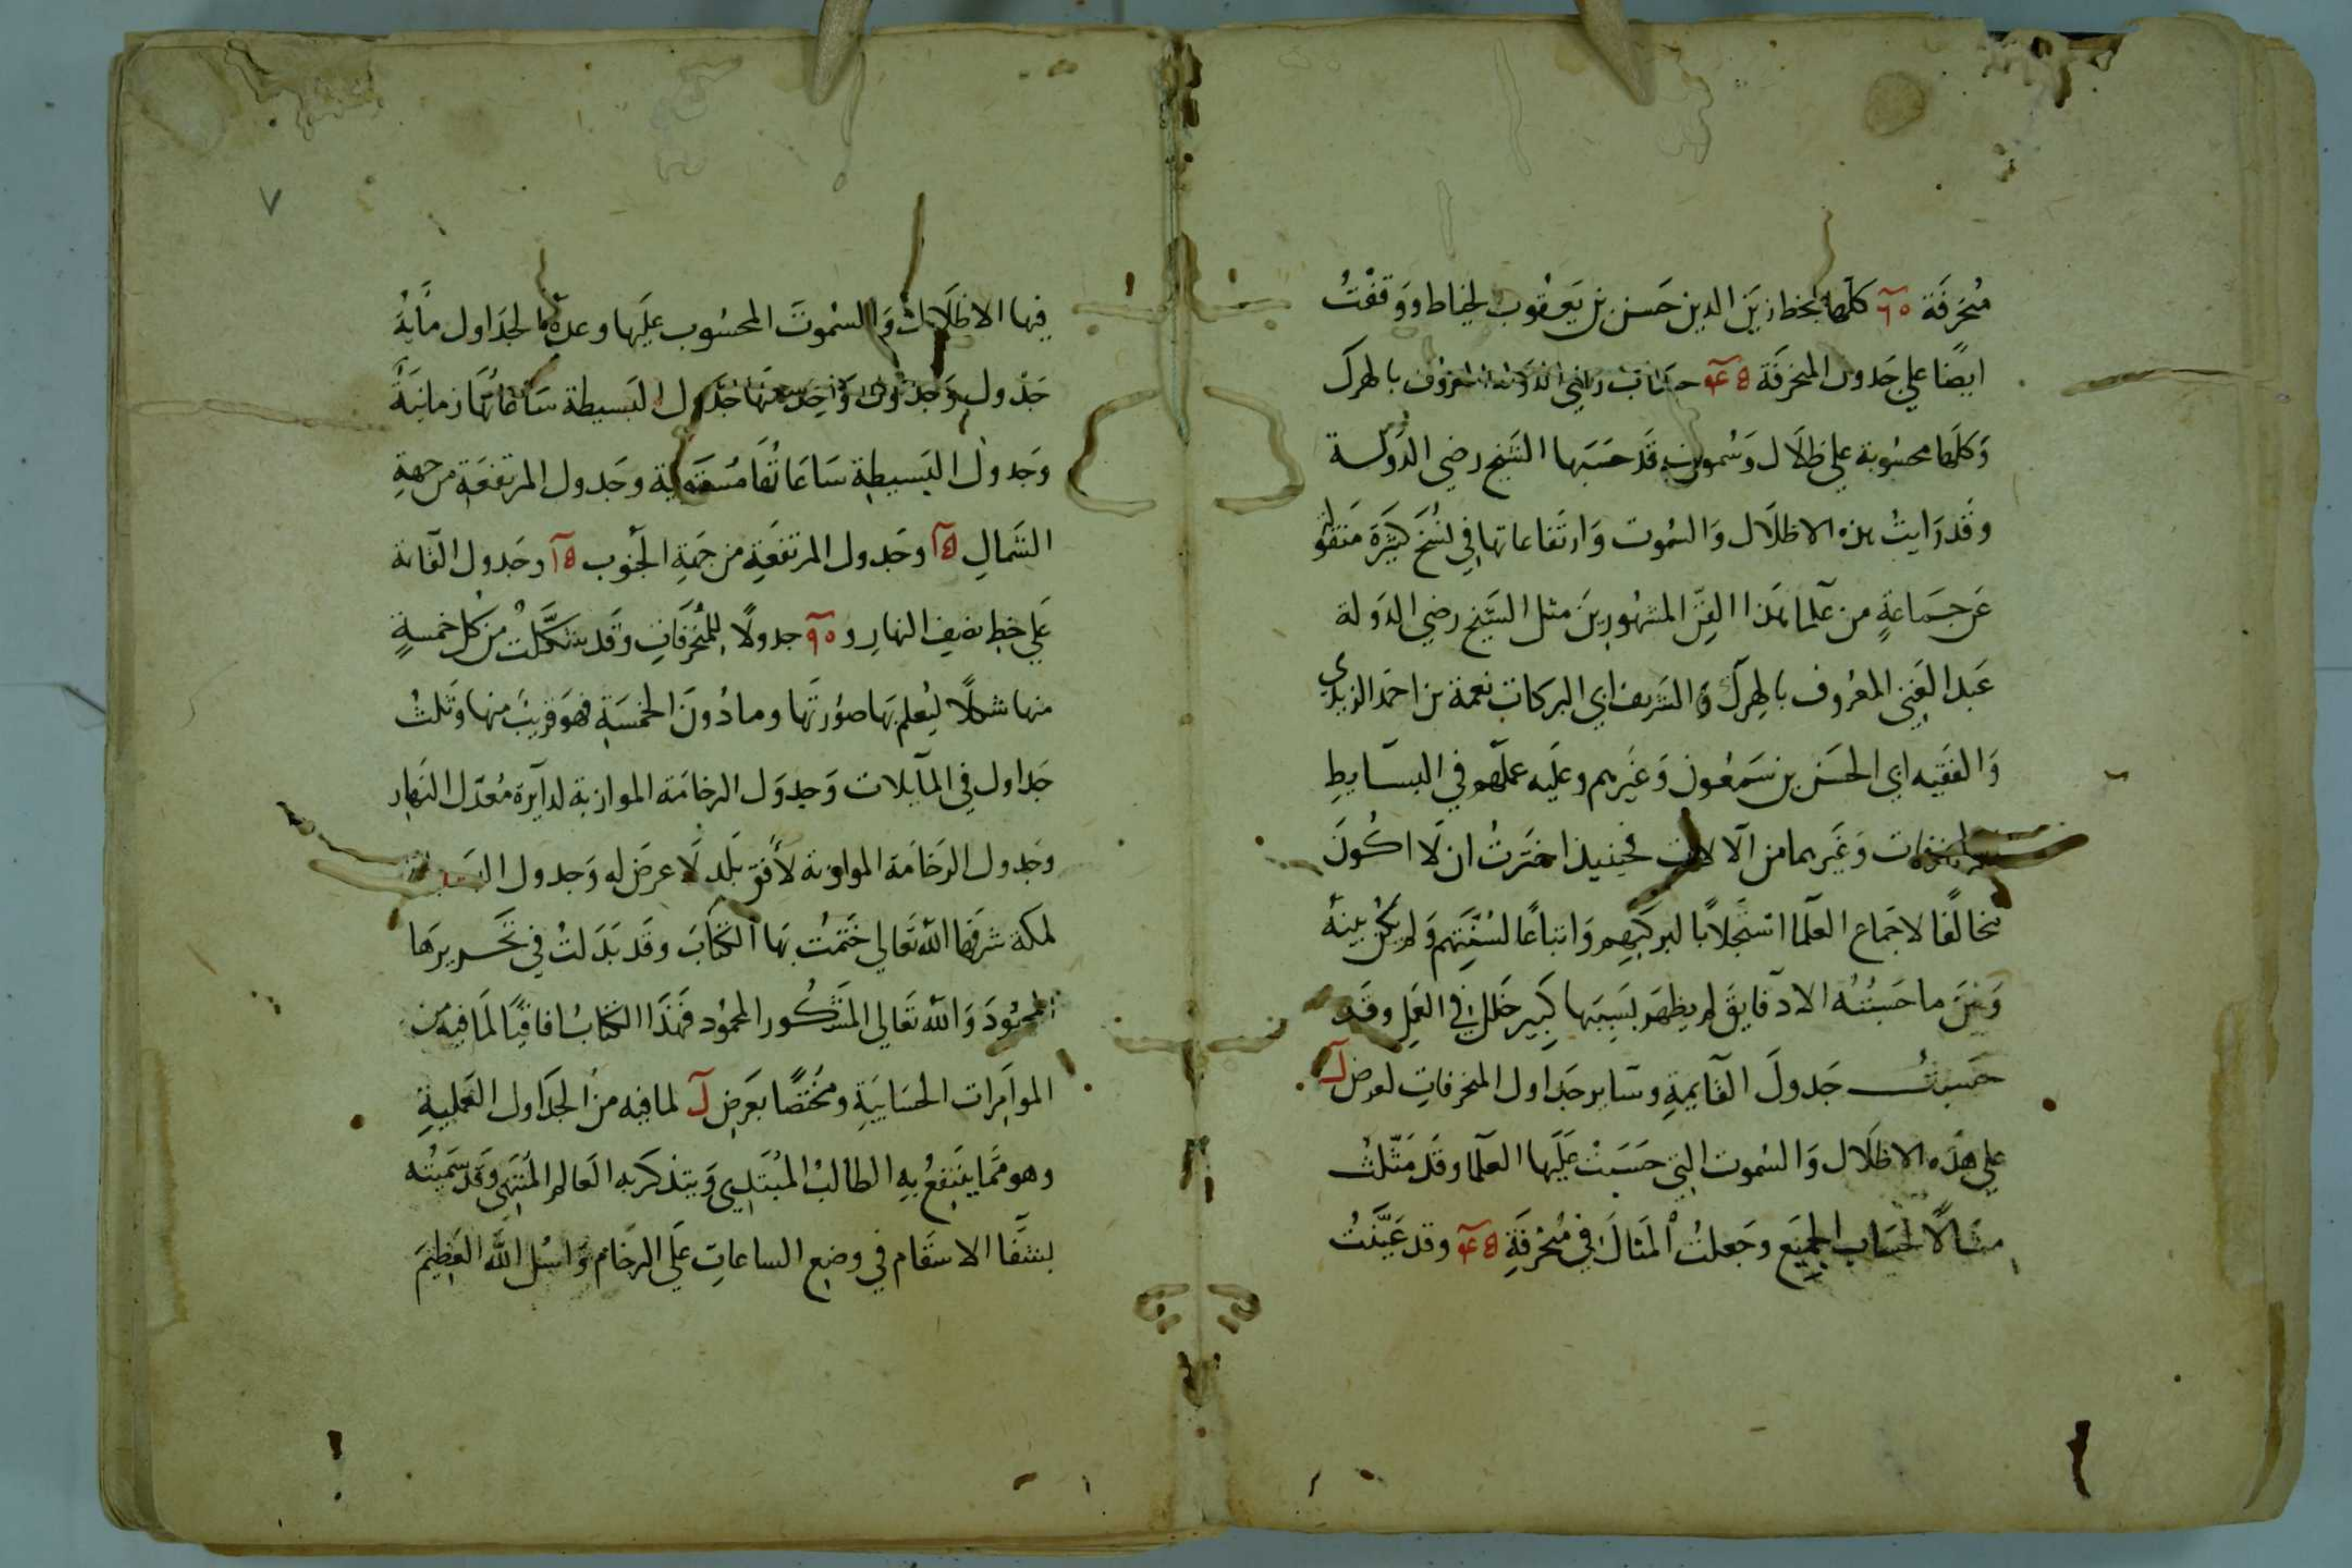 مُنحَرفَة ٦٥ كلّها بخط زَين الدين حَسَن بن يَعقوب الخياط ووَقفْتُ
ايضًا علي جَدول المنحرفَة ٤٥ حسَاب رضي الدَولة المعرُوف باطهرك
وَكلّها محسُوبة علي ظِلَال وَسُموتٍ قَد حَسَبَها الشَيخ رضي الدَولة
وقَد رَايتُ هذه الاظلَال وَالسُموت وَارتفَاعاتها في نُسَخٍ كثيرَةٍ مَنقولَة
عَن جَماعةٍ من عُلما هَذا الفنّ المشهُورينَ مثل الشيخ رضي الدَولة
عَبد الغَني المعرُوف باطهرك وَالشَريف ابي البركات نعمة بن احمَد الزيدي
وَالفَقيه ابي الحَسَن بن سَمعُون وَغَيرهم وعليه عملهم في البسَايطِ
والمنحرفات وَغَيرهما من الالات فحينيذ اختَرتُ ان لَا اكُونَ
مخالفًا لاجمَاع العلَما استجلابًا لبركتهِم وَاتباعًا لسُنّتهم وَلم يكُن بينهُ
وَبينَ ما حَسَبتُهُ الا دقايق لم يظهَر بسَببها كبير خَللٍ في العَمل وقَد
حَسبتُ جَدولَ القايمةِ وسَاير جَداول المنحرفاتِ لعرض ل
علي هَذه الاظلَال وَالسُموت التي حَسَبَتْ عَليهَا العلَما وقَد مَثّلتُ
مثَالًا لحسَاب الجميَع وجَعلتُ المثَالَ في مُنحرفَةِ ٤٥ وقد عَيَّنتُ
٧
فيها الاظلَالَ وَالسُموتَ المحسُوب عليَها وعدة الجدَاول مايةُ
جَدْولٍ وَجدْول وَاحِد منهَا جَدول البَسيطة سَاعَاتُهَا زمانيَةٌ
وجَدول البَسيطِة سَاعَاتُهَا مُستَوية وجَدول المرتفعَةِ من جهةِ
الشَمالِ ١٥ وجَدول المرتفعَةِ من جهَةِ الجَنوب ١٥ وجَدول القايمة
عَلي خط نصف النهارِ و ٩٠ جدولًا للمنحَرفَاتِ وقَد شكَّلتُ من كل خمسةٍ
منها شكلًا ليُعلم بهَا صُورتَها وما دُونَ الخمسَةِ فهوَ قريبُ منها وثَلثُ
جَداول في المآيلات وَجدوَل الرخامَة الموازية لدَآيرة مُعَدّل النَهار
وجَدول الرَخامَة الموازية لأُفق بَلد لَا عرَض له وَجدول
لمكة شرفَها الله تعَالي ختَمتُ بهَا الكتَابَ وقَد بَذلتُ في تحَريرهَا
المجهُودَ وَالله تعَالي المشَكُور المحمُود فَهَذَا الكتابُ افاقيًا لمَا فيه من
الموامَرات الحسَابيَةِ ومختصًا بعَرضِ ل لما فيه من الجدَاول العَمليةِ
وهو ممَّا ينتَفعُ بهِ الطالبُ المبُتَدِي وَيتذكرَ بهِ العَالم المُنتَهي وَقد سَميتُه
بشفَا الاسقام في وضع الساعاتِ عَلي الرخام وَاسئل اللهَ العَظِيمَ